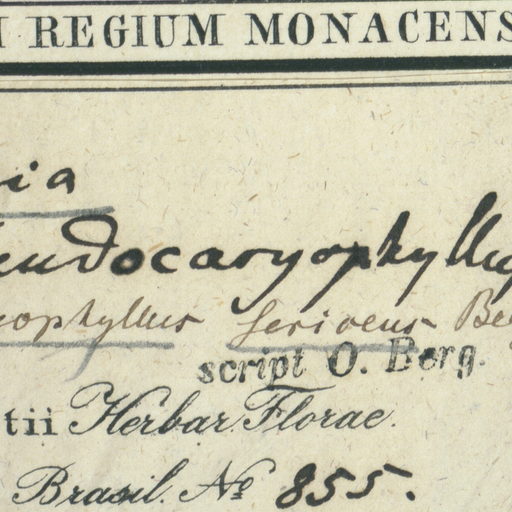 I REGIUM MONACENS
ia
eudocaryophyllus
ophyllus sericeus Be
script O. Berg.
tii Herbar. Florae
Brasil. No 855.